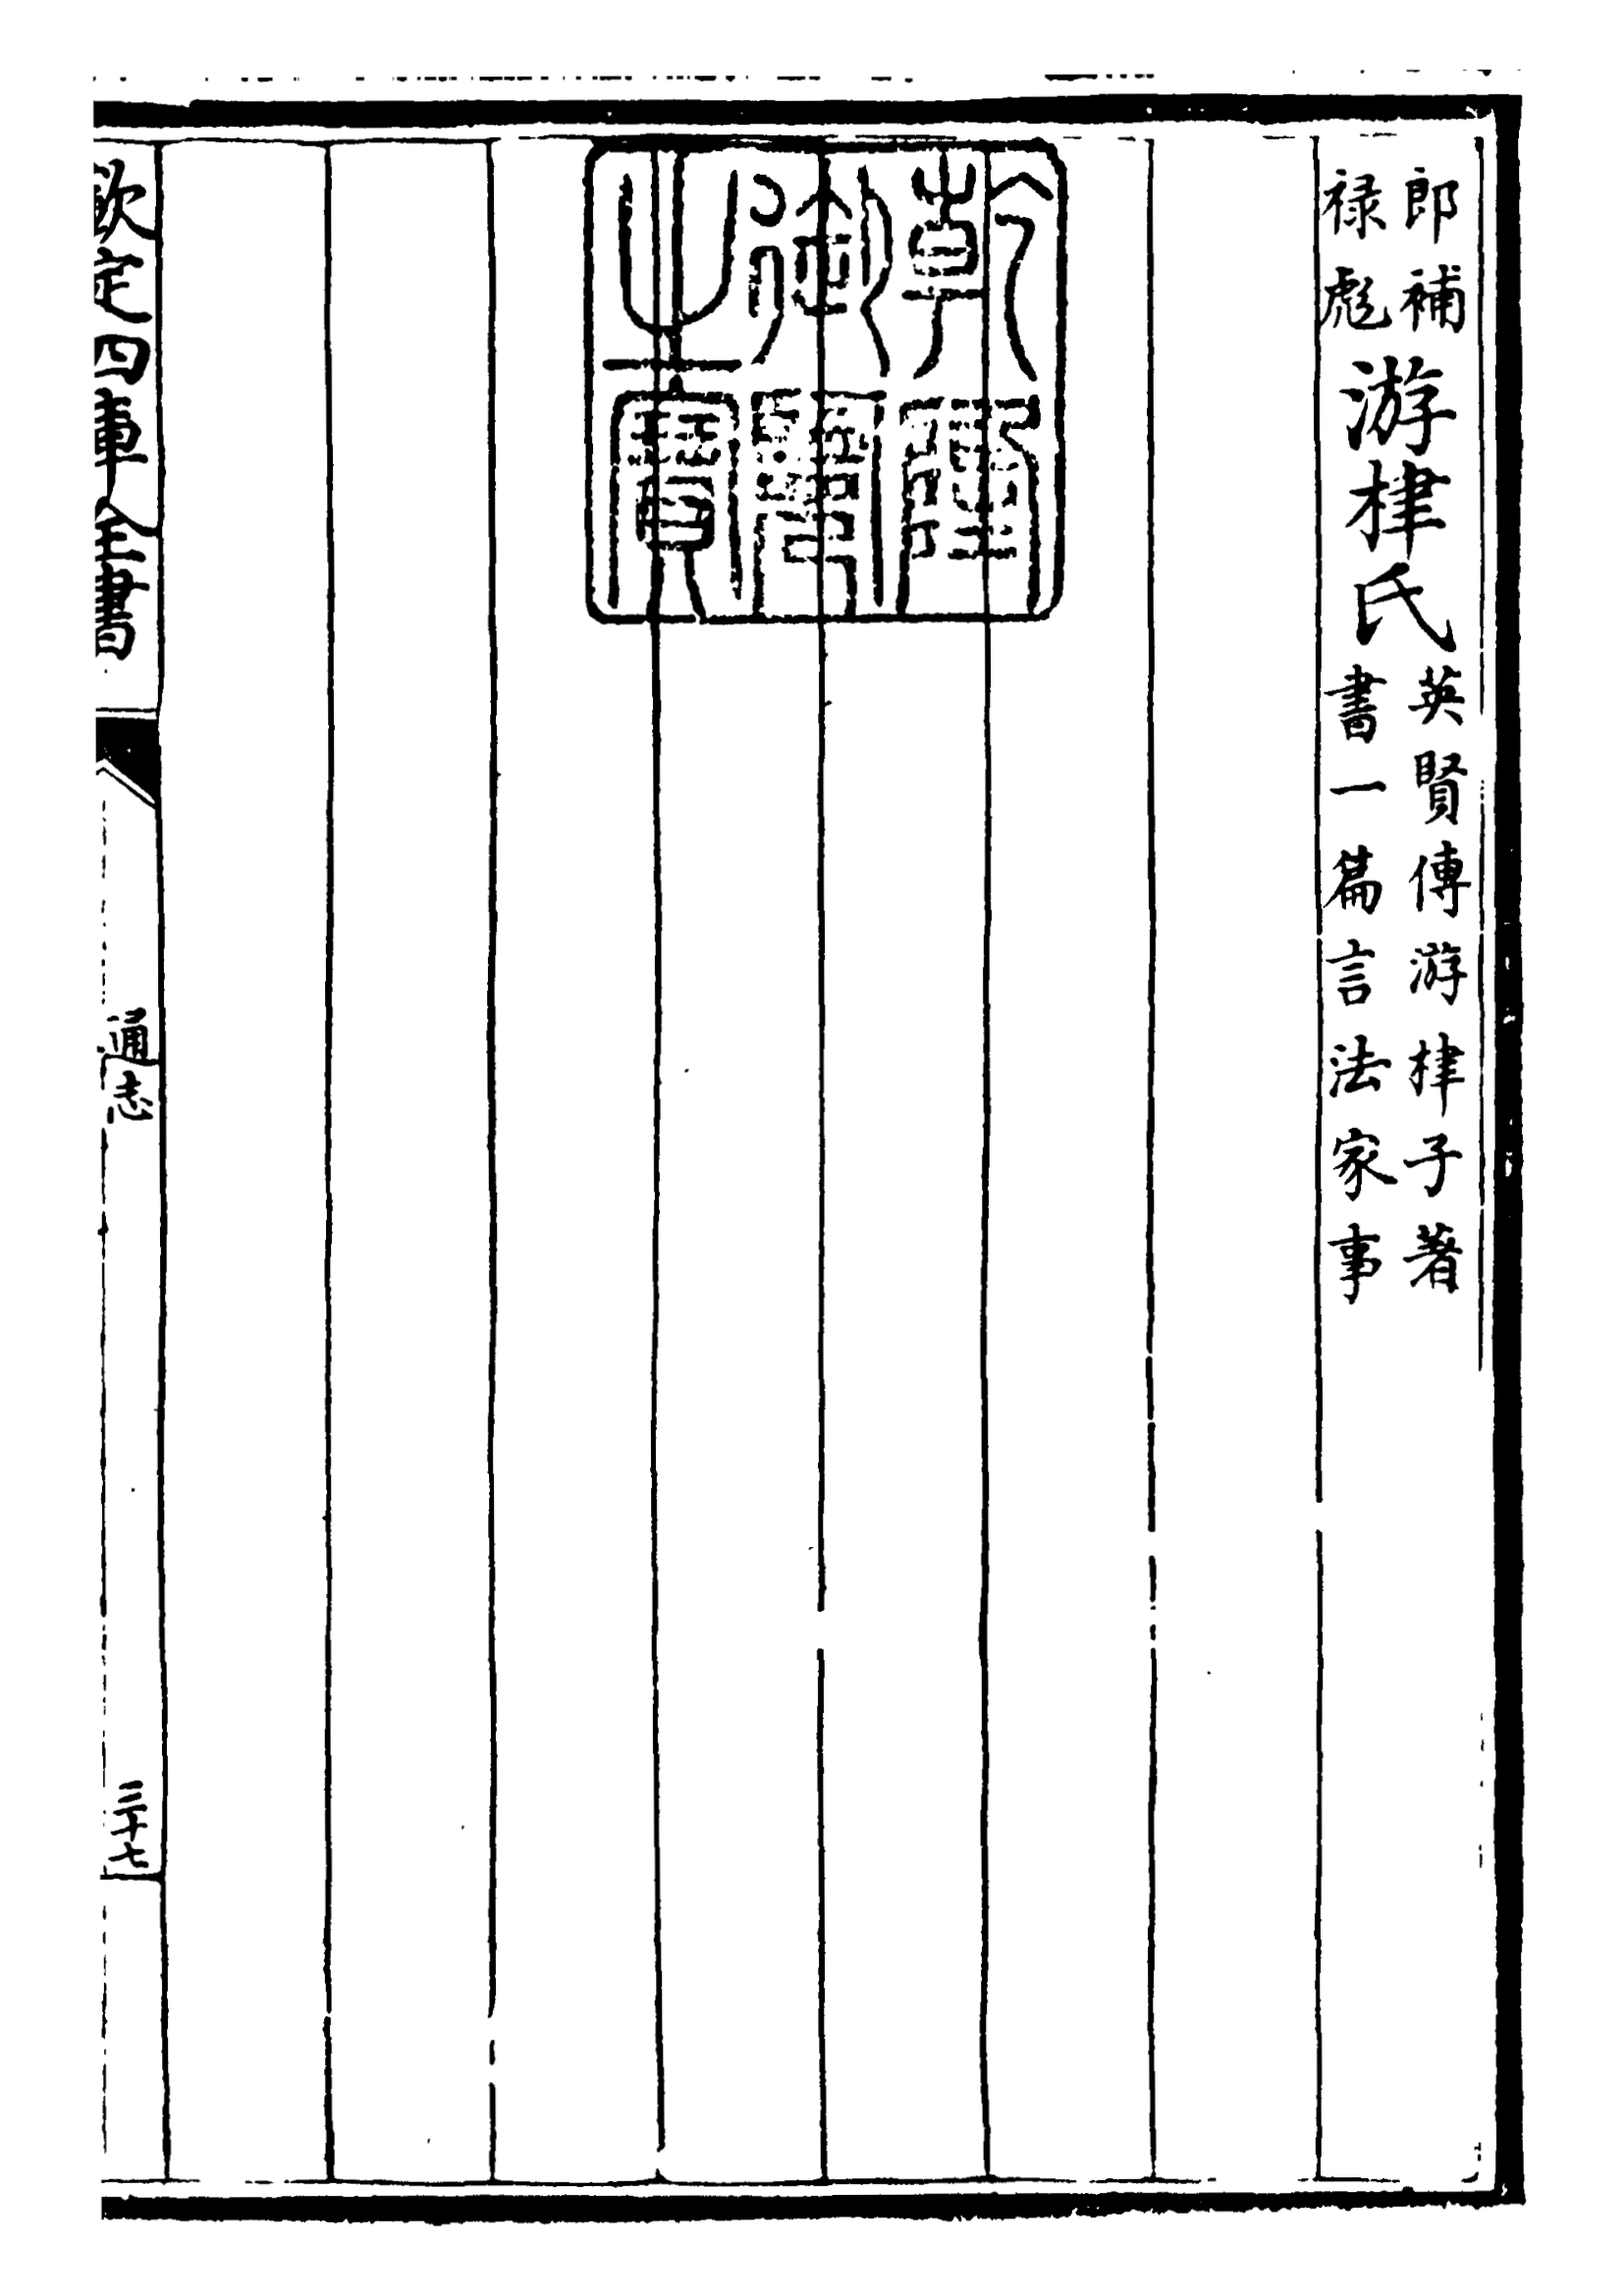 郎補
禄彪
游㭕氏
英賢傳游㭕子著
書一篇言法家事
乾隆御覽之寶
欽定四庫全書
通志
三十七